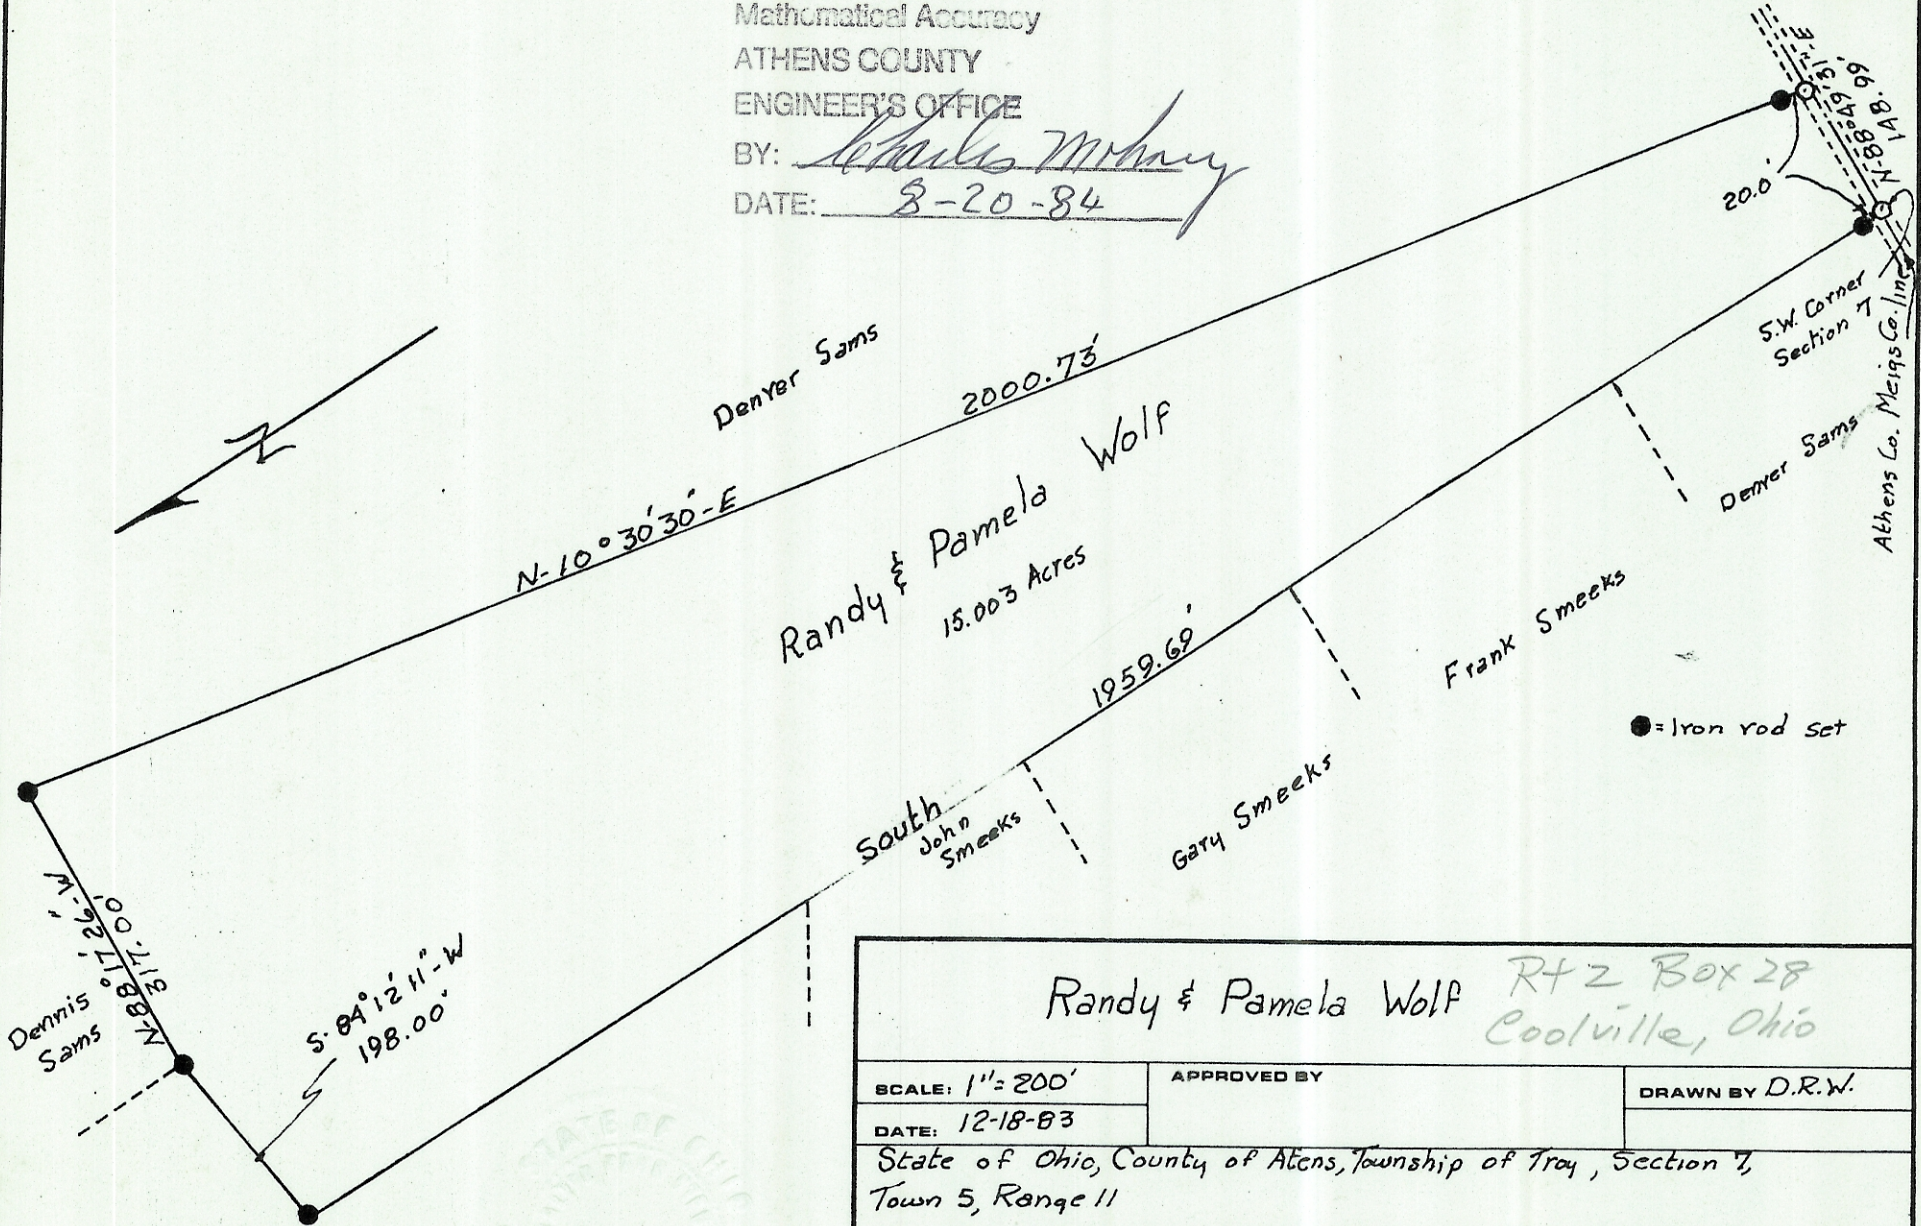 Mathematical Accuracy
ATHENS COUNTY
ENGINEER'S OFFICE
BY: Charles Mohney
DATE: 8-20-84
N-88°49'31"-E
148.99'
20.0'
S.W. Corner
Section 7
Athens Co. Meigs Co. line
Denver Sams
2000.73'
N-10°30'30"-E
N
Randy & Pamela Wolf
15.003 Acres
Denver Sams
1959.69'
South
Frank Smeeks
●=Iron rod set
Gary Smeeks
John
Smeeks
N-88°17'26"-W
317.00'
Dennis
Sams
S-84°12'11"-W
198.00'
Randy & Pamela Wolf
Rt 2 Box 28
Coolville, Ohio
SCALE: 1"=200'
APPROVED BY
DRAWN BY D.R.W.
DATE: 12-18-83
State of Ohio, County of Atens, Township of Troy, Section 7,
Town 5, Range 11